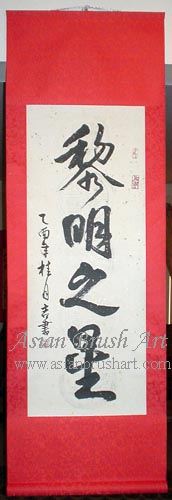 黎明之星
乙酉年桂月吉書
Asian Brush Art
www.asianbrushart.com